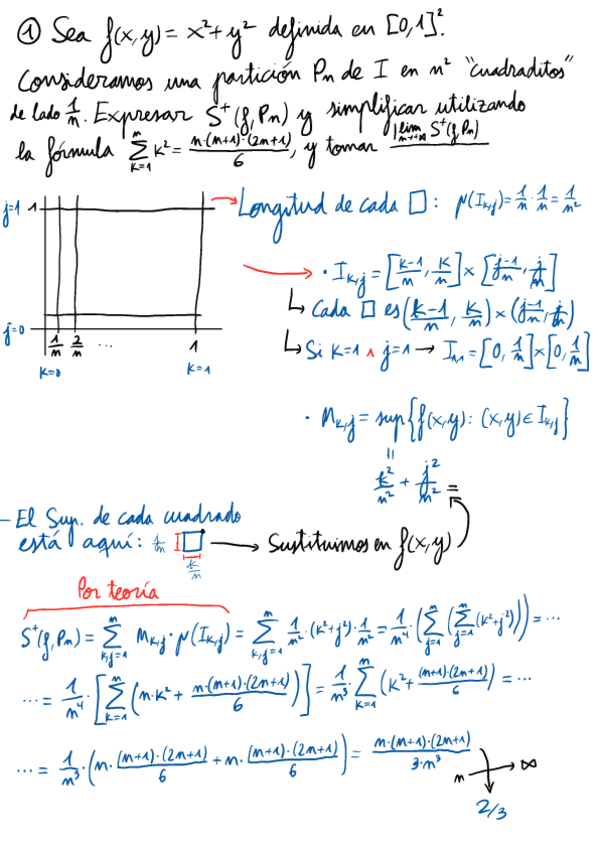 ① Sea f(x,y) = x² + y² definida en [0,1]².
Consideramos una partición Pn de I en n² "cuadraditos"
de lado 1/n. Expresar S⁺(f,Pn) y simplificar utilizando
la fórmula ∑_{k=1}^{n} k² = n·(n+1)·(2n+1)/6, y tomar lim_{n→+∞} S⁺(f,Pn)
j=1 1
j=0
1/n 2/n ... 1
k=0 k=1
Longitud de cada □: μ(I_{k,j}) = 1/n · 1/n = 1/n²
• I_{k,j} = [k-1/n, k/n] × [j-1/n, j/n]
↳ Cada □ es (k-1/n, k/n) × (j-1/n, j/n)
↳ Si k=1 ∧ j=1 → I_{1,1} = [0, 1/n] × [0, 1/n]
• M_{k,j} = sup{f(x,y): (x,y) ∈ I_{k,j}}
=
k²/n² + j²/n² =
- El Sup. de cada cuadrado
está aquí: 1/n □ → Sustituimos en f(x,y)
k/n
Por teoría
S⁺(f,Pn) = ∑_{k,j=1}^{n} M_{k,j} · μ(I_{k,j}) = ∑_{k,j=1}^{n} 1/n² · (k²+j²) · 1/n² = 1/n⁴ · (∑_{j=1}^{n} (∑_{j=1}^{n} (k²+j²))) = ...
... = 1/n⁴ · [∑_{k=1}^{n} (n·k² + n·(n+1)·(2n+1)/6)] = 1/n³ · ∑_{k=1}^{n} (k² + (n+1)·(2n+1)/6) = ...
... = 1/n³ · (n· (n+1)·(2n+1)/6 + n· (n+1)·(2n+1)/6) = n·(n+1)·(2n+1)/3·n³
n → ∞
2/3